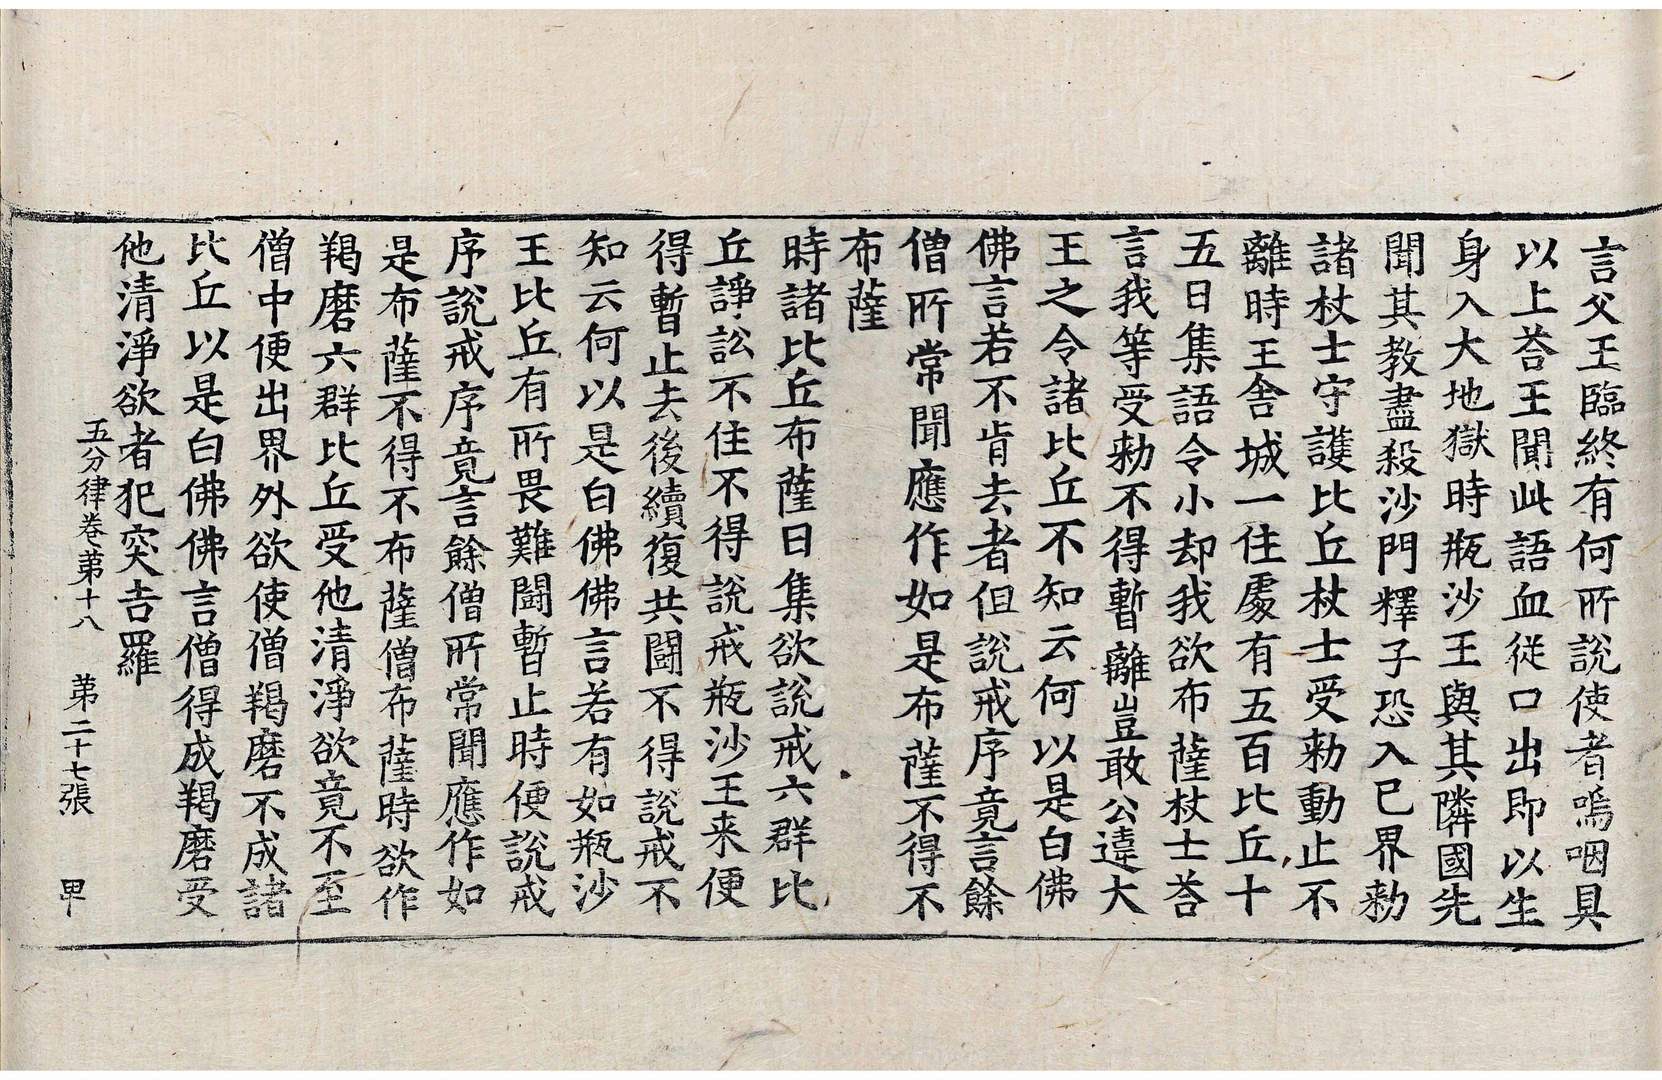 言父王臨終有何所說使者嗚咽具
以上荅王聞此語血從口出即以生
身入大地獄時瓶沙王與其隣國先
聞其教盡殺沙門釋子恐入已界勑
諸杖士守護比丘杖士受勑動止不
離時王舍城一住處有五百比丘十
五日集語令小却我欲布薩杖士荅
言我等受勑不得暫離豈敢公違大
王之令諸比丘不知云何以是白佛
佛言若不肯去者但說戒序竟言餘
僧所常聞應作如是布薩不得不
布薩
時諸比丘布薩日集欲說戒六群比
丘諍訟不住不得說戒瓶沙王来便
得暫止去後續復共鬪不得說戒不
知云何以是白佛佛言若有如瓶沙
王比丘有所畏難鬪暫止時便說戒
序說戒序竟言餘僧所常聞應作如
是布薩不得不布薩僧布薩時欲作
羯磨六群比丘受他清淨欲竟不至
僧中便出界外欲使僧羯磨不成諸
比丘以是白佛佛言僧得成羯磨受
他清淨欲者犯突吉羅
五分律卷苐十八 苐二十七張 甲